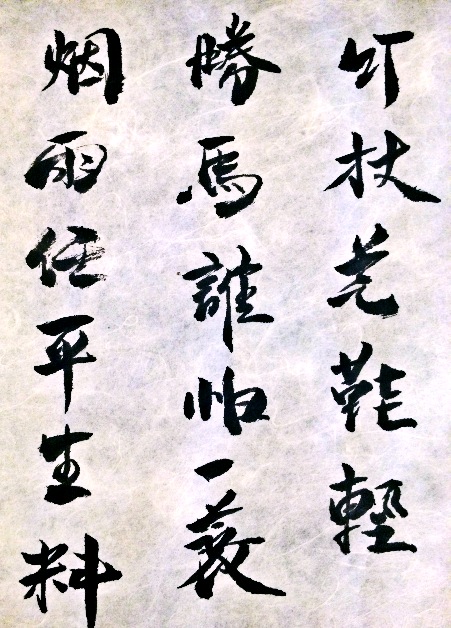 竹杖芒鞋輕
勝馬誰怕一蓑
烟雨任平生料